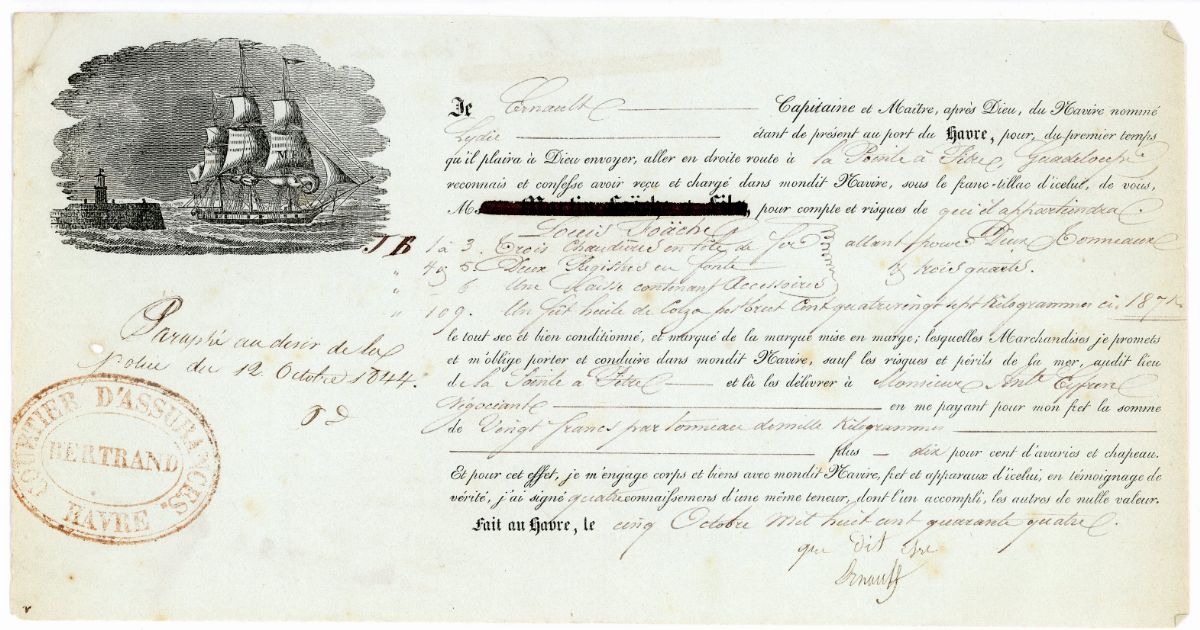 Je Ernault Capitaine et Maître, après Dieu, du Navire nommé
Lydie étant de présent au port du Havre, pour, du premier temps
qu'il plaira à Dieu envoyer, aller en droite route à la Pointe à Pitre Guadeloupe
reconnais et confesse avoir reçu et chargé dans mondit Navire, sous le franc-tillac d'icelui, de vous,
M pour compte et risques de qui il appartiendra.
Louis
JB 1 à 3. Trois Chaudières en tôle de fer allant pour Deux Tonneaux
" 4 5. Deux Registres en fonte trois quarts.
" 6 Une Caisse contenant Accessoires
" 109. Un fût huile de Colza pst brut Cent quatre vingt sept Kilogrammes ci. 187 k
le tout sec et bien conditionné, et marqué de la marque mise en marge; lesquelles Marchandises je promets
et m'oblige porter et conduire dans mondit Navire, sauf les risques et périls de la mer, audit lieu
de la Pointe à Pitre et là les délivrer à Monsieur
Négociant en me payant pour mon fret la somme
de Vingt francs par tonneau de mille Kilogrammes
plus dix pour cent d'avaries et chapeau.
Et pour cet effet, je m'engage corps et biens avec mondit Navire, fret et apparaux d'icelui, en témoignage de
vérité, j'ai signé quatre connaissemens d'une même teneur, dont l'un accompli, les autres de nulle valeur.
Fait au Havre, le cinq Octobre mil huit cent quarante quatre.
que dit être
Ernault
Paraphé au désir de la
police du 12 Octobre 1844.
COURTIER D'ASSURANCES.
BERTRAND
HAVRE